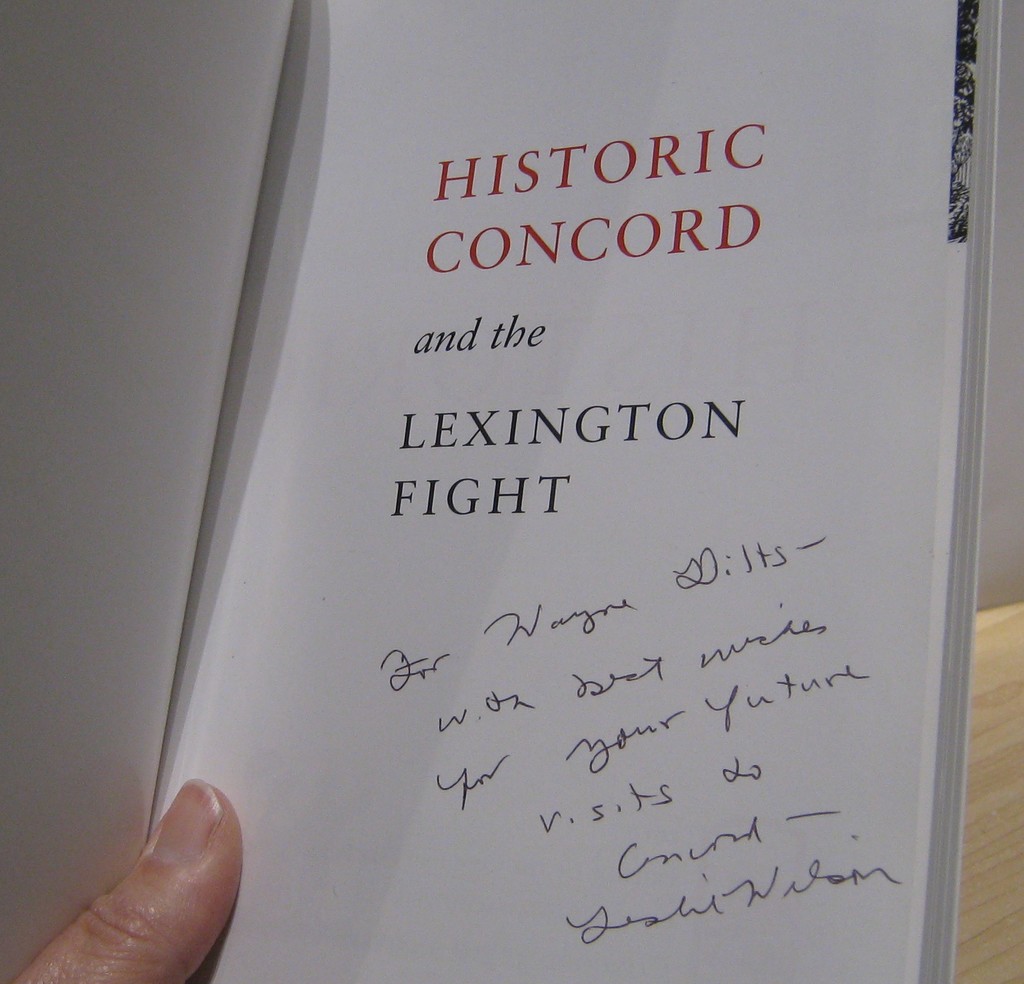 HISTORIC
CONCORD
and the
LEXINGTON
FIGHT
For Wayne Dilts—
with best wishes
for your future
visits to
Concord —
Leslie Wilson